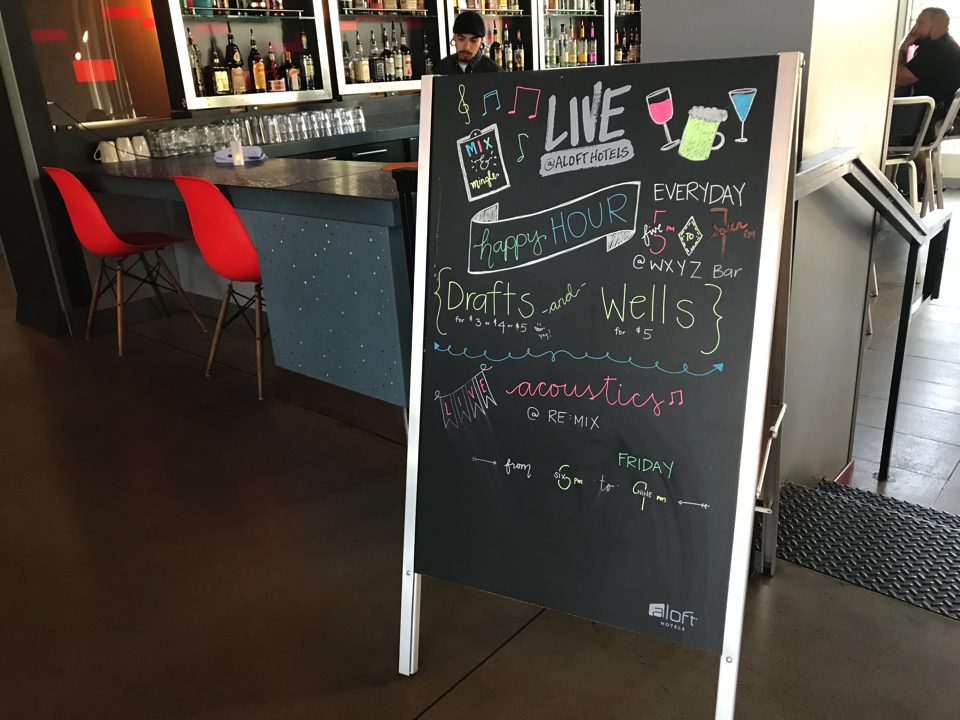 LIVE
@ALOFT HOTELS
MIX
&
mingle
happy HOUR
EVERYDAY
five 5 PM TO seven 7 PM
@ WXYZ Bar
{Drafts -and- Wells}
for $3 or $4 or $5 yay! for $5
LIVE acoustics
@ RE:MIX
FRIDAY
from SIX 6 PM to 9 NINE PM
aloft
HOTELS